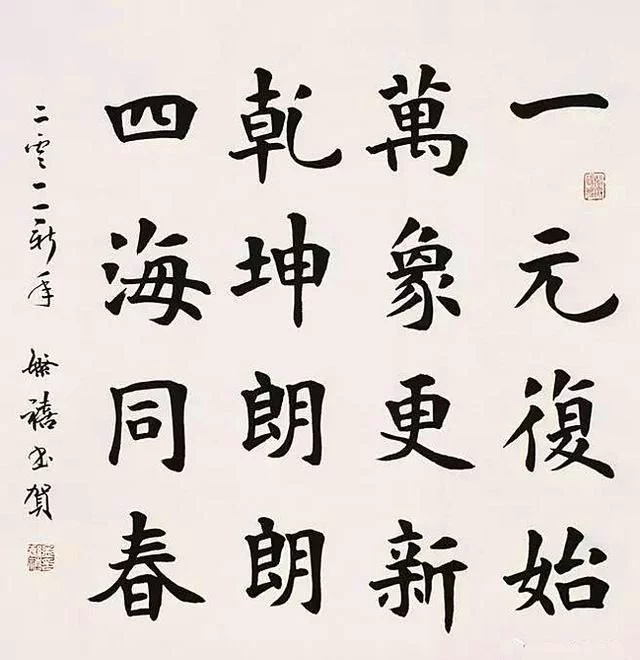 一元復始
萬象更新
乾坤朗朗
四海同春
二零一一新年 禧书贺